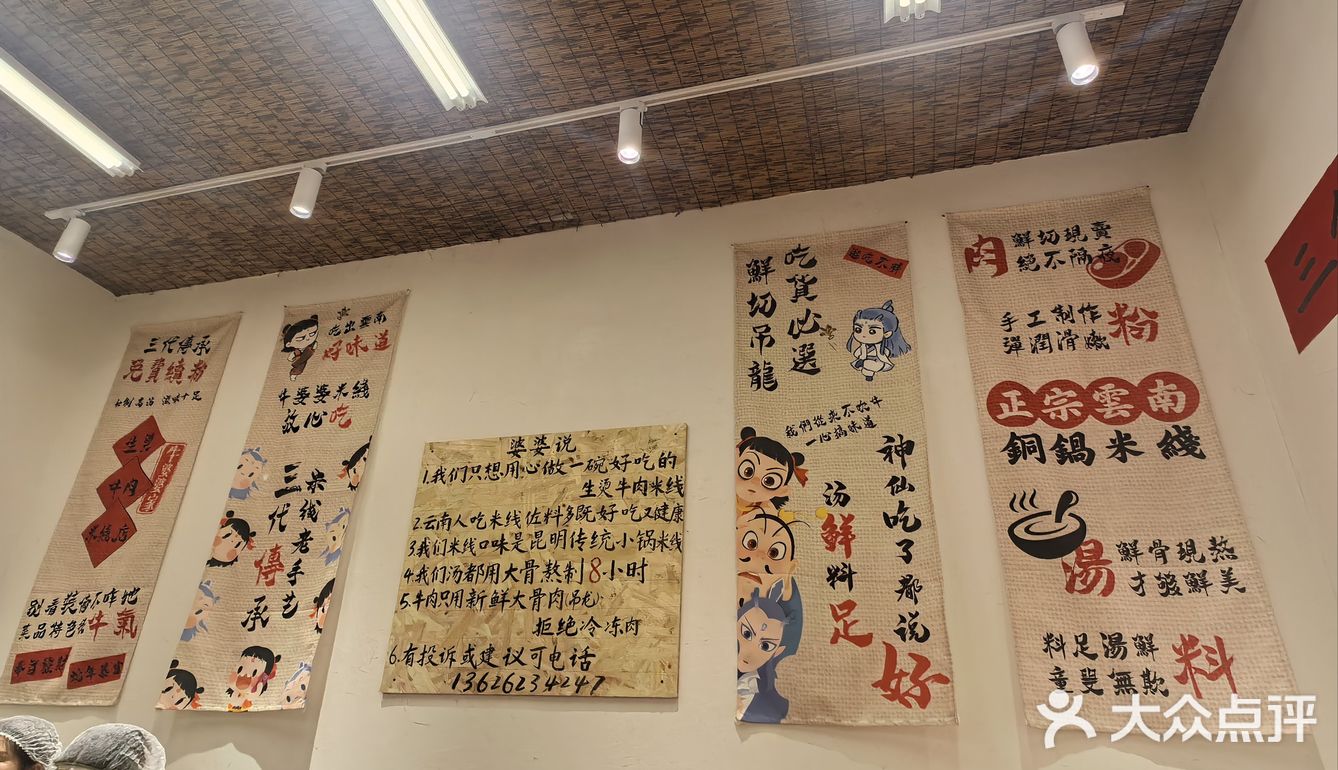 三代傳承
免費續粉
生燙
牛肉
米線店
牛婆婆家
别看裝修不咋地
菜品特色各牛氣
吃出雲南
好味道
牛婆婆米綫
放心吃
米线老手艺
三代傳承
婆婆说
1.我们只想用心做一碗好吃的
生烫牛肉米线
2.云南人吃米线佐料多既好吃又健康
3.我们米线口味是昆明传统小锅米线
4.我们汤都用大骨熬制8小时
5.牛肉只用新鲜大骨肉(吊龙)
拒绝冷冻肉
6.有投诉或建议可电话
13626234247
吃貨必選
鮮切吊龍
我們從來不吹牛
一心搞味道
神仙吃了都说好
汤鲜料足
肉
鮮切現賣
絕不隔夜
手工制作
彈潤滑嫩
粉
正宗雲南
銅鍋米綫
湯
鮮骨現熬
才發鮮美
料足湯鮮
童叟無欺
料
大众点评